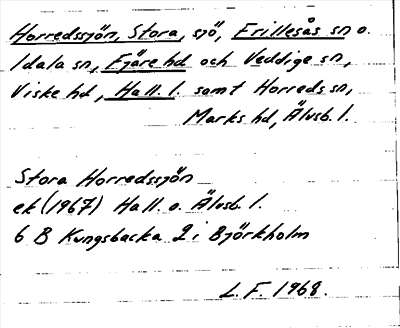 Horredssjön, Stora, sjö, Frillesås sn o.
Idala sn, Fjäre hd och Veddige sn,
Viske hd, Hall. l. samt Horreds sn,
Marks hd, Älvsb. l.
Stora Horredssjön
ek (1967) Hall. o. Älvsb. l.
6 B Kungsbacka 2 i Björkholm
L.F. 1968.